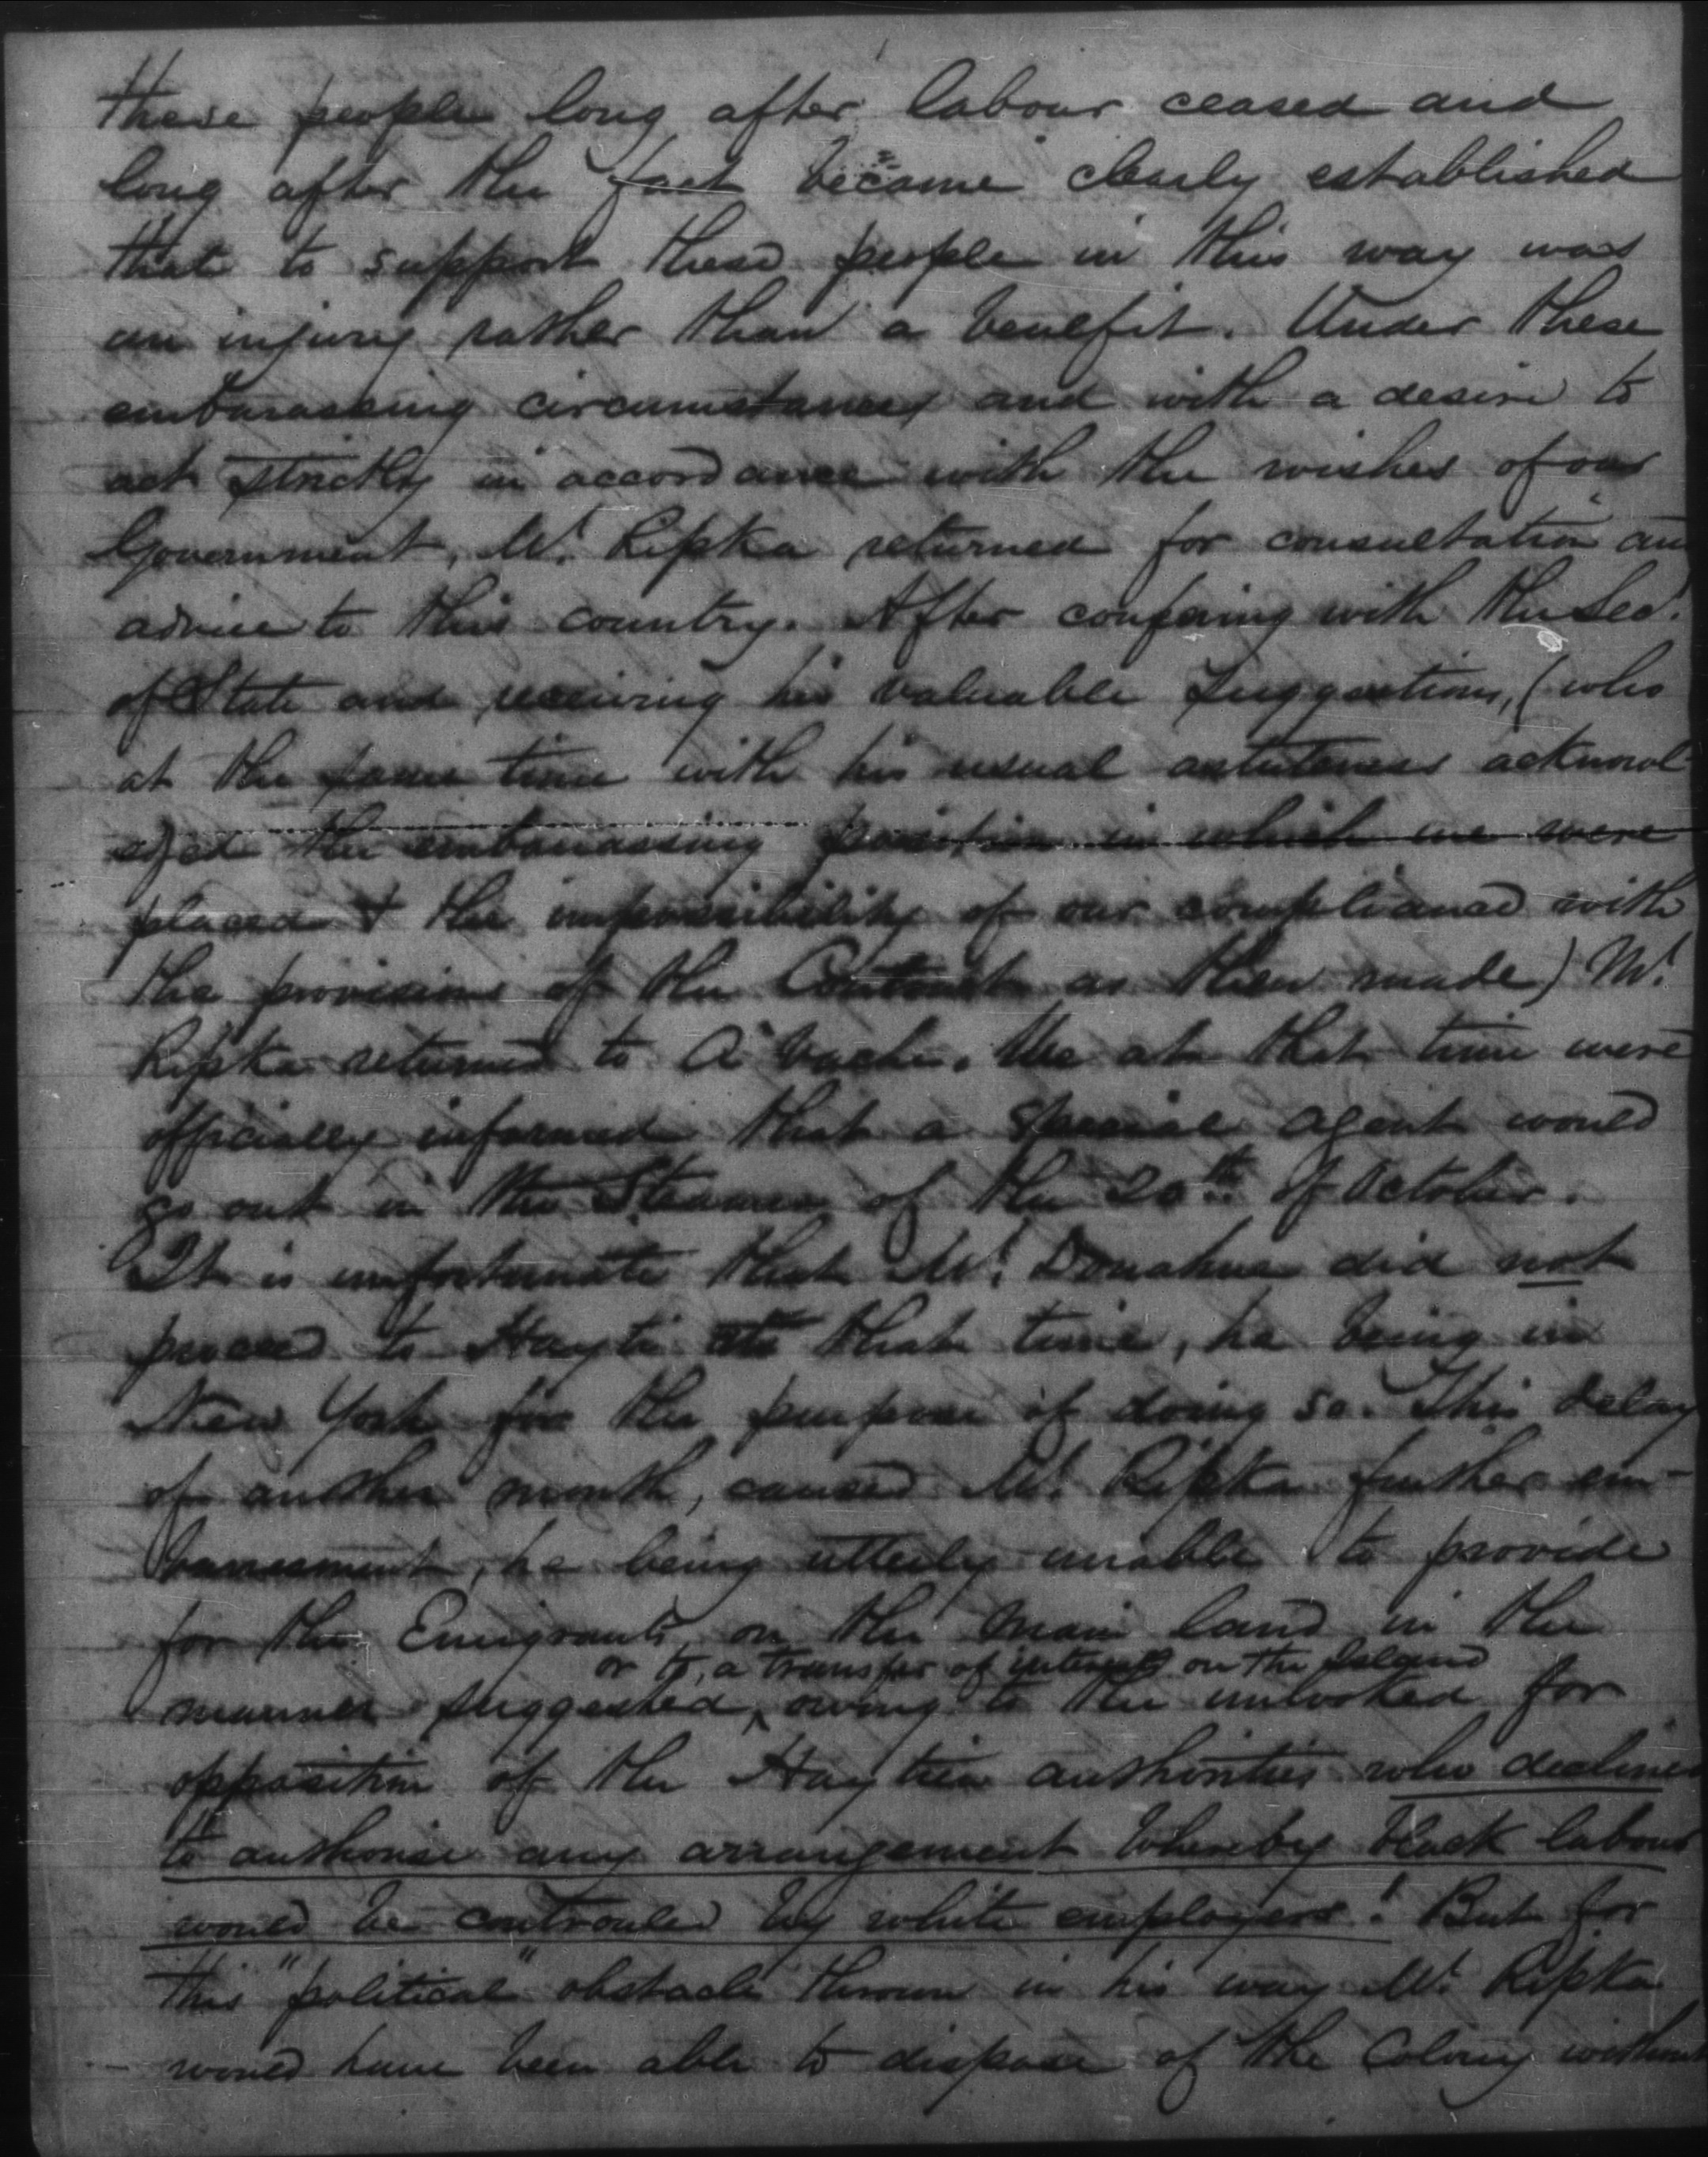 these people long after labour ceased and
long after the fact became clearly established
that to support these people in this way was
an injury rather than a benefit. Under these
embarassing circumstances and with a desire to
act strictly in accordance with the wishes of our
Government, Mr. Ripka returned for consultation an
advice to this country. After confering with the Sec.
of State and receiving his valuable suggestions, (who
at the same time with his usual astuteness acknowl
edged the embarrassing position in which we were
placed & the impossibility of our compliance with
the provisions of the Contract as then made) Mr.
Ripka returned to A'Vache. We at that time were
officially informed that a special agent would
go out in the Steamer of the 20th of October.
It is unfortunate that Mr. Donahue did not
proceed to Hayti at that time, he being in
New York for the purpose of doing so. This delay
of another month, caused Mr. Ripka further em-
barrasment, he being utterly unable to provide
for the Emigrants on the main land in the
or to, a transfer of interest on the Island
manner suggested, owing to the unlooked for
opposition of the Haytien authorities who declined
to authorise any arrangement whereby black labour
would be controuled by white employers! But for
this "political" obstacle thrown in his way Mr. Ripka
would have been able to dispose of the Colony without